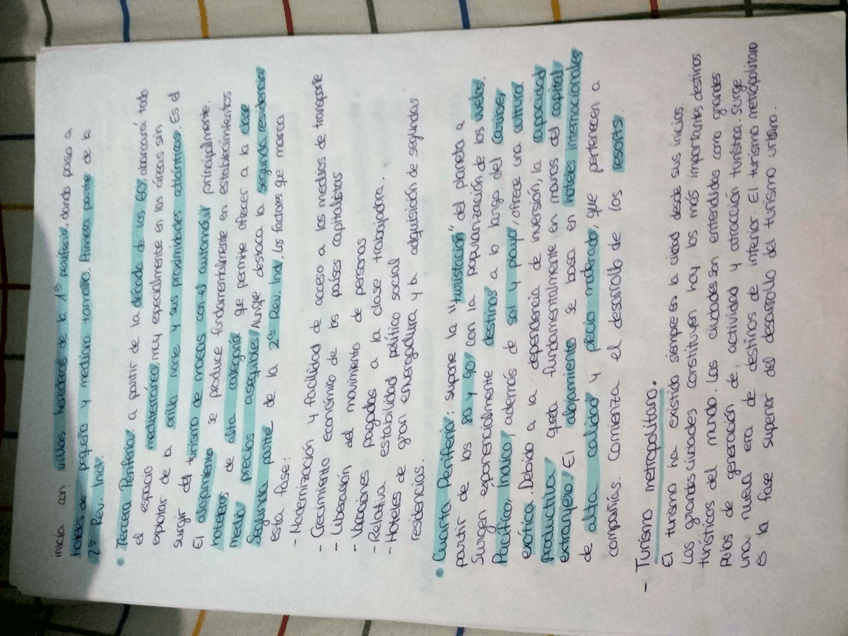 inicia con villas herederas de la 1ª periferia, dando paso a
hoteles de pequeño y mediano tamaño. Primera parte de la
2ª Rev. Ind.
• Tercera Periferia: a partir de la década de los 60, abarcará todo
el espacio mediterráneo, muy especialmente en las áreas sin
explotar de la orilla norte y sus proximidades atlánticas. Es el
surgir del turismo de masas con el automóvil principalmente.
El alojamiento se produce fundamentalmente en establecimientos
hoteleros de alta categoría que permite ofrecer a la clase
media precios asequibles. Aunque destaca la segunda residencia.
Segunda parte de la 2ª Rev. Ind. Los factores que marca
esta fase:
- Modernización y facilidad de acceso a los medios de transporte
- Crecimiento económico de los países capitalistas
- Liberación del movimiento de personas
- Vacaciones pagadas a la clase trabajadora.
- Relativa estabilidad político social
- Hoteles de gran envergadura y la adquisición de segundas
residencias.
• Cuarta Periferia: supone la "turistación" del planeta a
partir de los 80 y 90, con la popularización de los vuelos.
Surgen exponencialmente destinos a lo largo del Caribe,
Pacífico, Índico, además de sol y playa, ofrece una cultura
exótica. Debido a la dependencia de inversión, la capacidad
productiva queda fundamentalmente en manos del capital
extranjero. El alojamiento se basa en hoteles internacionales
de alta calidad y precio moderado, que pertenecen a
compañías. Comienza el desarrollo de los resorts.
- Turismo metropolitano.
El turismo ha existido siempre en la ciudad desde sus inicios.
Las grandes ciudades constituyen hoy los más importantes destinos
turísticos del mundo. Las ciudades son entendidas como grandes
polos de generación de actividad y atracción turística. Surge
una nueva era de destinos de interior. El turismo metropolitano
es la fase superior del desarrollo del turismo urbano.